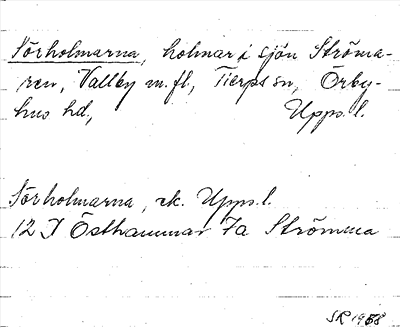 Sörholmarna, holmar i sjön Ströma-
ren, Vallby m.fl., Tierps sn, Örby-
hus hd, Upps. l.
Sörholmarna, ek. Upps. l.
12 I Östhammar 7a Strömma
SR 1958